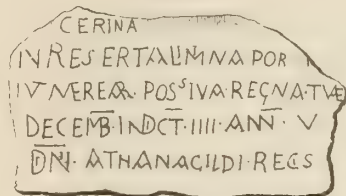 CERINA
IN RES ERTALIMNA POR
IVNEREAR POSSIVA·REGNA·TVÆ
DECEMB·INDCT·IIII·ANN·V
DN̄I·ATHANAGILDI·REGS